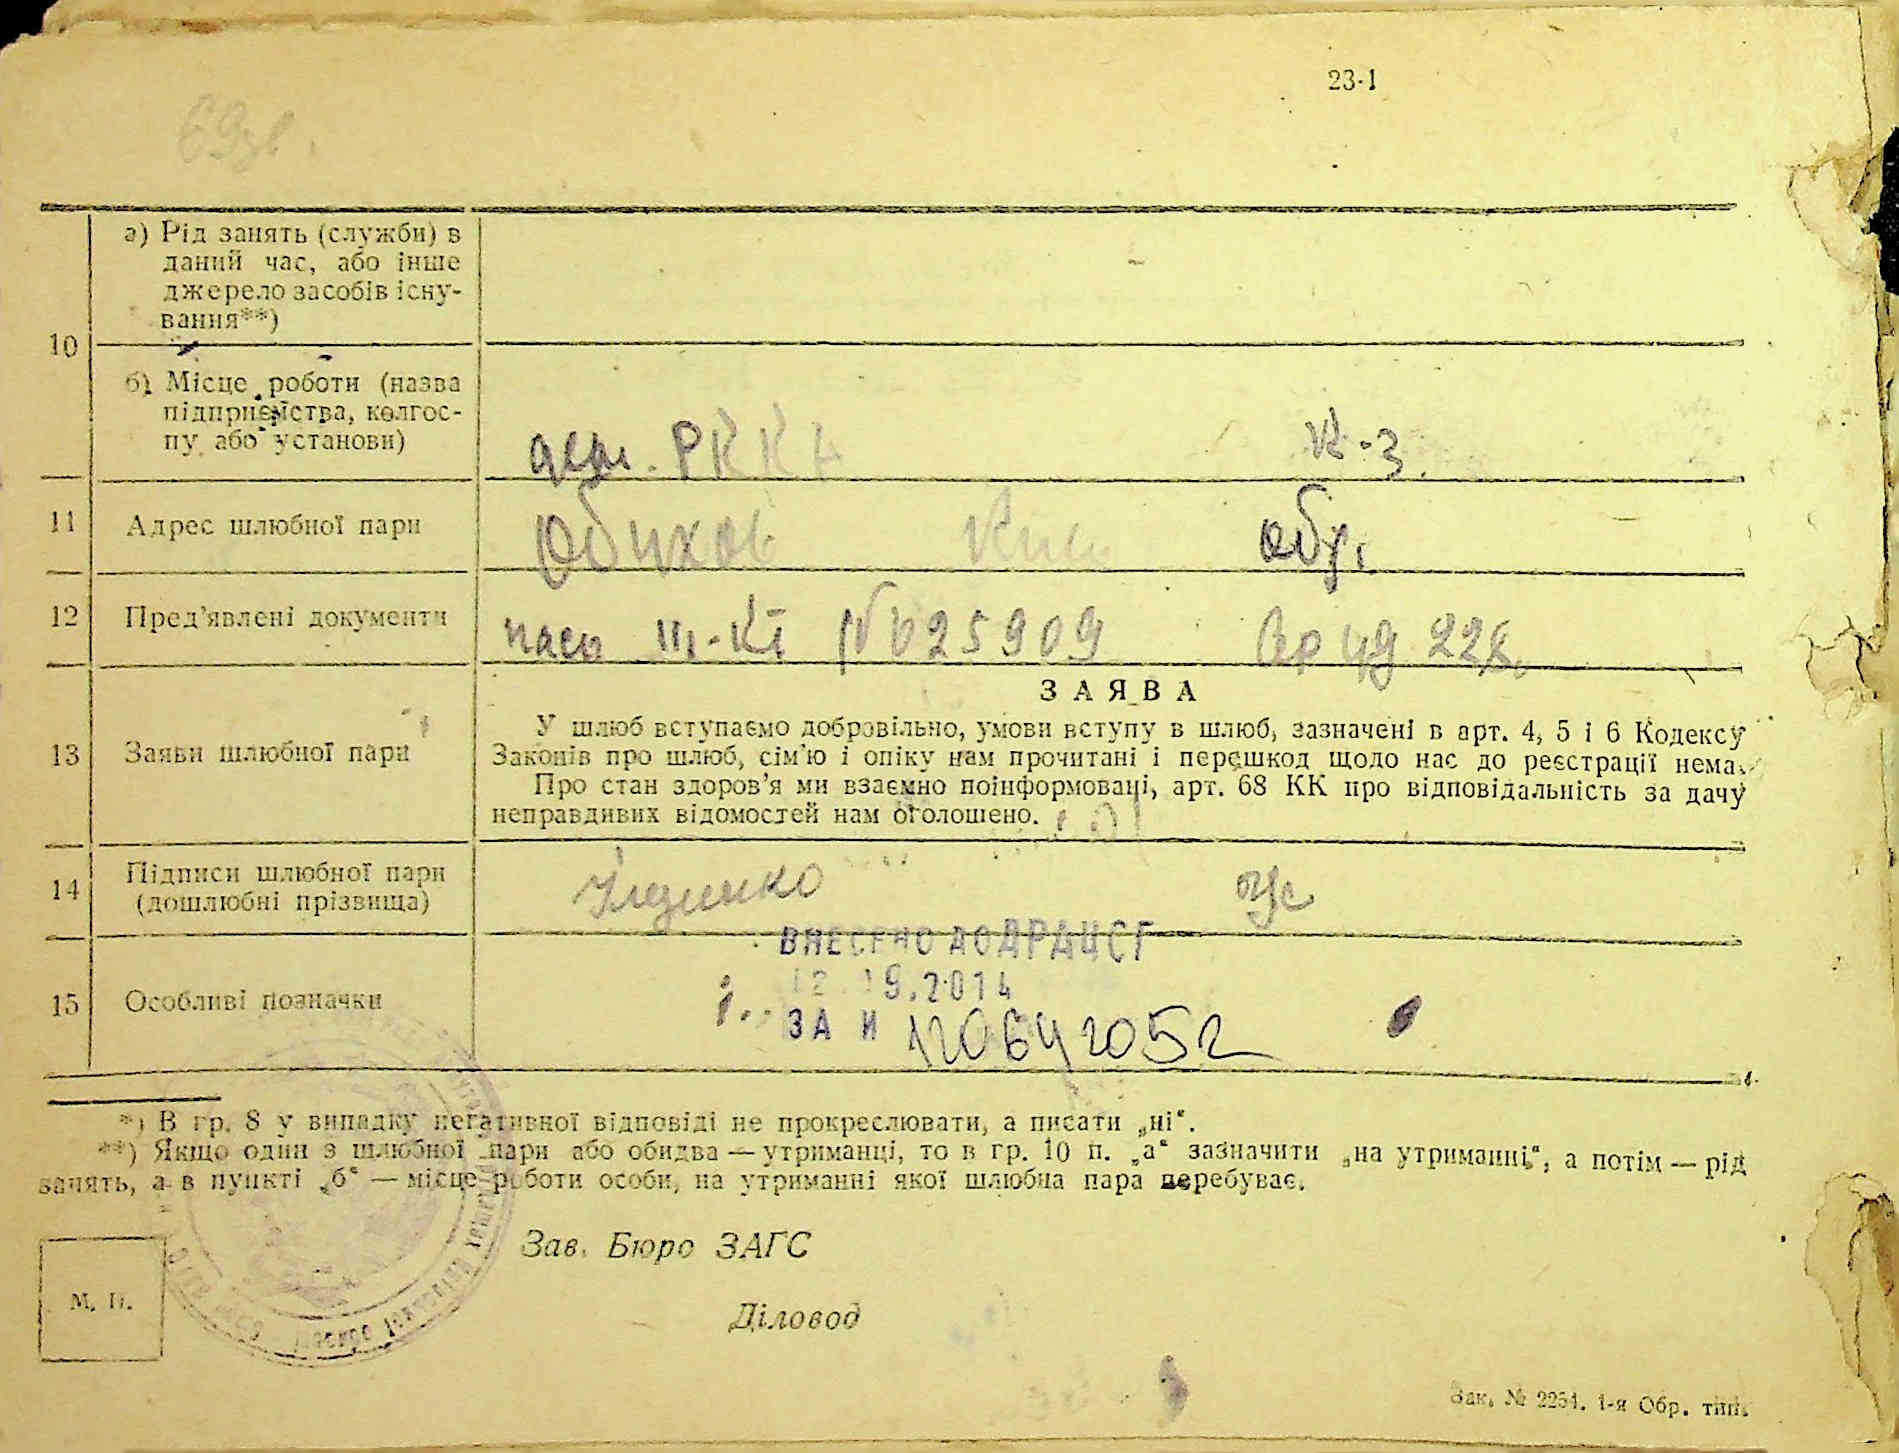 23-1
69зв.
10
а) Рід занять (служби) в
даний час, або інше
джерело засобів існу-
вання**)
б) Місце роботи (назва
підприємства, колгос-
пу або установи)
РККА К-з.
11 Адрес шлюбної пари
обу.
12 Пред'явлені документи
пасп III-КІ № 025909 228
13 Заяви шлюбної пари
ЗАЯВА
У шлюб вступаємо добровільно, умови вступу в шлюб, зазначені в арт. 4, 5 і 6 Кодексу
Законів про шлюб, сім'ю і опіку нам прочитані і перешкод щодо нас до реєстрації нема.
Про стан здоров'я ми взаємно поінформовані, арт. 68 КК про відповідальність за дачу
неправдивих відомостей нам оголошено.
14 Підписи шлюбної пари
(дошлюбні прізвища)
15 Особливі позначки
ВНЕСЕНО ДО ДРАЦСГ
2014
ЗА И
*) В гр. 8 у випадку негативної відповіді не прокреслювати, а писати „ні“.
**) Якщо один з шлюбної пари або обидва — утриманці, то в гр. 10 п. „а“ зазначити „на утриманні“, а потім — рід
занять, а в пункті „б“ — місце роботи особи, на утриманні якої шлюбна пара перебуває.
Зав. Бюро ЗАГС
М. П.
Діловод
Зак. № 2254. 1-я Обр. тип.